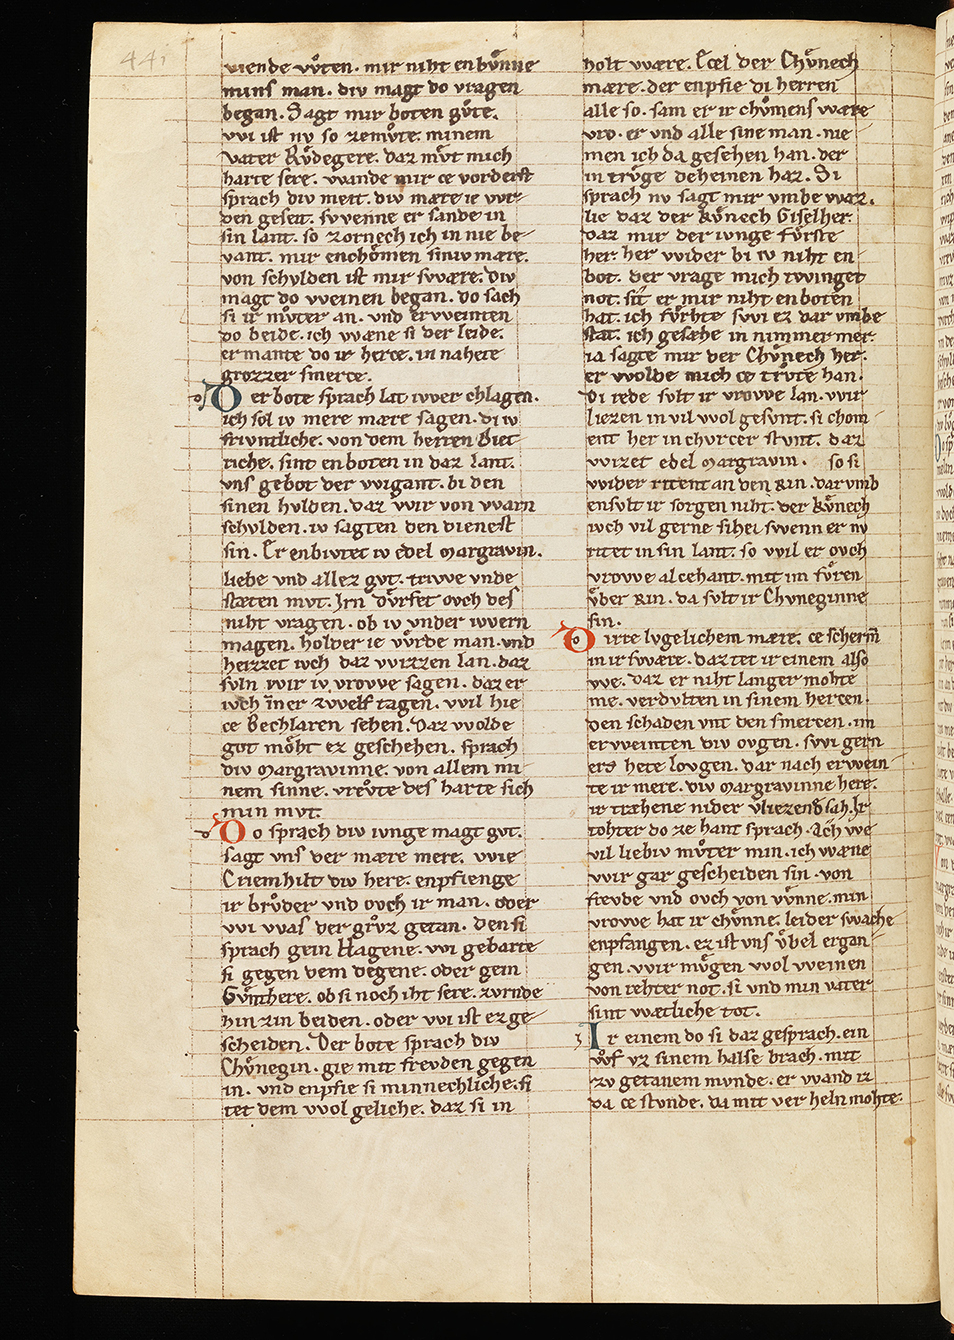 441
wende wͦten. mir niht enbvͤnne
mins man. div magt do vragen
began. Sagt mir boten gvͦte.
wi ist nv so zemvͦte. minem
vater Rvͦdegere. daz mvͦt mich
harte sere. wande mir ce vorderst
sprach div meit. div mære ie wr
den geseit. swenne er sande in
sin lant. so zornech ich in nie be
vant. mir enchoͤmen siniv mære.
von schvlden ist mir swære. Div
magt do weinen began. do sach
si ir mvͦter an. vnd erweinten
do beide. ich wæne si der leide.
ermante do ir herce. in nahete
grozzer smerce.
Der bote sprach lat iwer chlagen.
ich sol iv mere mære sagen. div
frivntliche. von dem herren Diet
riche. sint enboten in daz lant.
vns gebot der wigant. bi den
sinen hvlden. daz wir von warn
schvlden. iv sagten den dienest
sin. Er enbivtet iv edel Margravin.
liebe vnd allez gvt. triwe vnde
stæten mvt. Irn dvͤrfet ovch des
niht vragen. ob iv vnder iwern
magen. holder ie wͤrde man. vnd
heizzet ivch daz wizzen lan. daz
svln wir iv vrowe sagen. daz er
ivch inner zwelf tagen. wil hie
ce Bechlaren sehen. Daz wolde
got moͤht ez geschehen. sprach
div Margravinne. von allem mi
nem sinne. vrevͦte des harte sich
min mvt.
Do sprach div ivnge magt gvt.
sagt vns der mære mere. wie
Criemhilt div here. enpfienge
ir brvͦder vnd ovch ir man. oder
wi was der grvͦz getan. den si
sprach gein Hagene. wi gebarte
si gegen dem degene. oder gein
Gvͤnthere. ob si noch iht sere. zvrnde
hin zin beiden. oder wi ist ez ge
scheiden. Der bote sprach div
Chvͤnegin. gie mit frevden gegen
in. vnd enpfie si minnechliche. si
tet dem wol geliche. daz si in
holt wære. Ecel der Chvͤnech
mære. der enpfie di herren
alle so. sam er ir choͤmens wære
vro. er vnd alle sine man. nie
men ich da gesehen han. der
in trvͤge deheinen haz. Si
sprach nv sagt mir vmbe waz.
lie daz der Kvͤnech Giselher.
daz mir der ivnge fvͤrste
her. her wider bi iv niht en
bot. der vrage mich twinget
not. sit er mir niht enboten
hat. ich fvͤrhte swi ez dar vmbe
stat. ich gesehe in nimmer mer.
ia sagte mir der Chvͤnech her.
er wolde mich ce trvͤte han.
Di rede svlt ir vrowe lan. wir
liezen in vil wol gesvnt. si chom
ent her in chvrcer stvnt. daz
wizet edel Margravin. so si
wider ritent an den Rin. dar vmb
ensvlt ir sorgen niht. der kvͤnech
ivch vil gerne sihet swenn er nv
ritet in sin lant. so wil er ovch
vrowe al cehant. mit im fvͤren
vͤber Rin. da svlt ir Chvneginne
sin.
Dirre lvgelichem mære. ce scherm
in ir swære. daz tet ir einem also
we. daz er niht langer mohte
me. verdvlten in sinem hercen.
den schaden vnt den smercen. im
erweinten div ovgen. swi gern
ers hete lovgen. dar nach erwein
te ir mere. div Margravinne here.
ir træhene nider vliezend sah. Ir
tohter do ze hant sprach. Ach we
vil liebiv mvͦter min. ich wæne
wir gar gescheiden sin. von
frevde vnd ovch von wͤnne. min
vrowe hat ir chvͤnne. leider swache
enpfangen. ez ist vns vͤbel ergan
gen. wir mvͤgen wol weinen
von rehter not. si vnd min vater
sint wætliche tot.
Ir einem do si daz gesprach. ein
wͦf vz sinem halse brach. mit
zv getanem mvnde. er wand iz
da ce stvnde. da mit ver heln mohte.